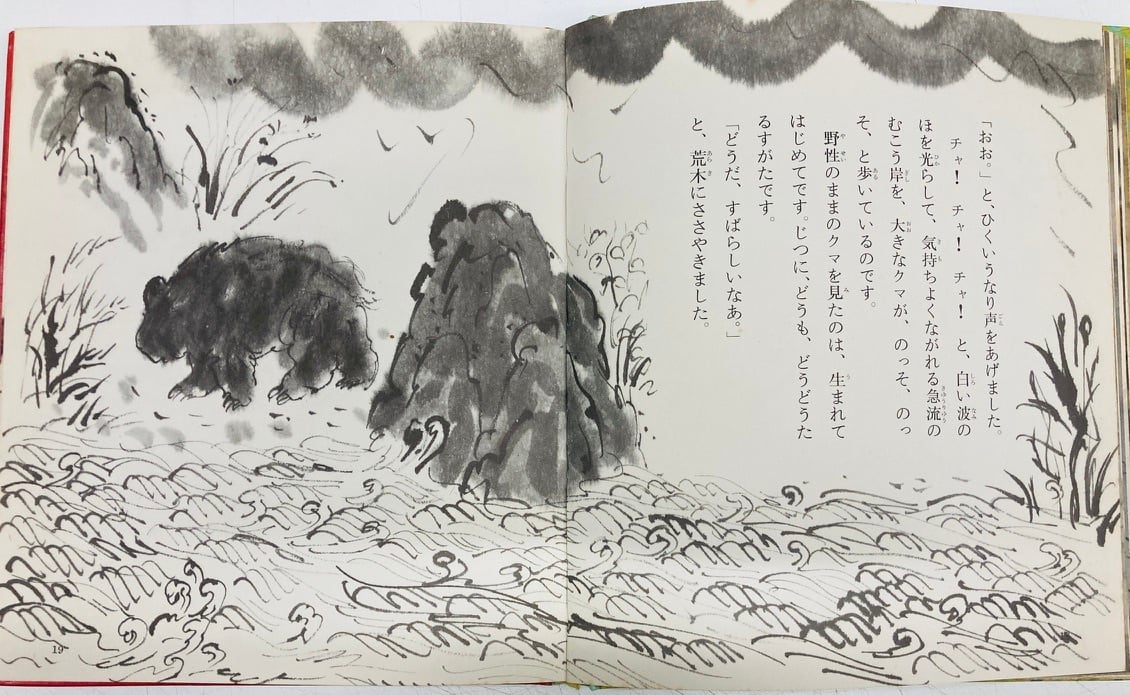 「おお。」と、ひくいうなり声をあげました。
チャ！　チャ！　チャ！　と、白い波の
ほを光らして、気持ちよくながれる急流の
むこう岸を、大きなクマが、のっそ、のっ
そ、と歩いているのです。
野性のままのクマを見たのは、生まれて
はじめてです。じつに、どうも、どうどうた
るすがたです。
「どうだ、すばらしいなあ。」
と、荒木にささやきました。
19